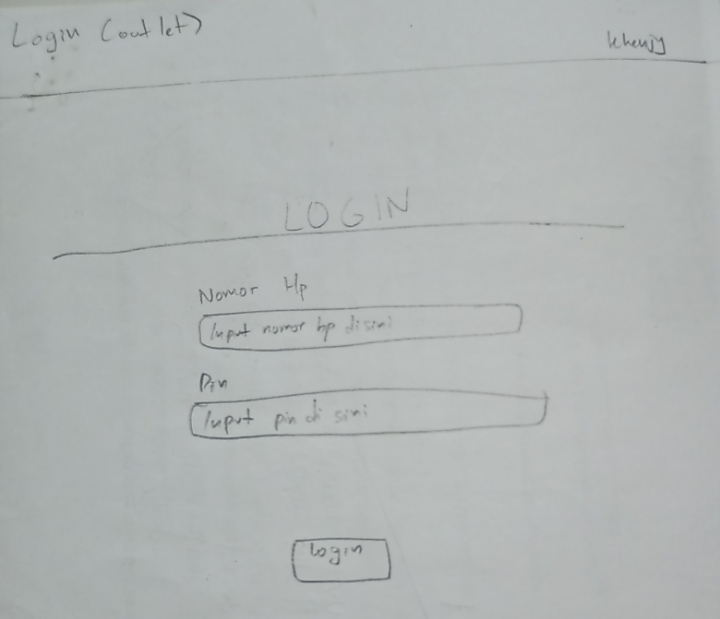 Login (outlet)
khenjy
LOGIN
Nomor Hp
Input nomor hp disini
Pin
Input pin di sini
Login